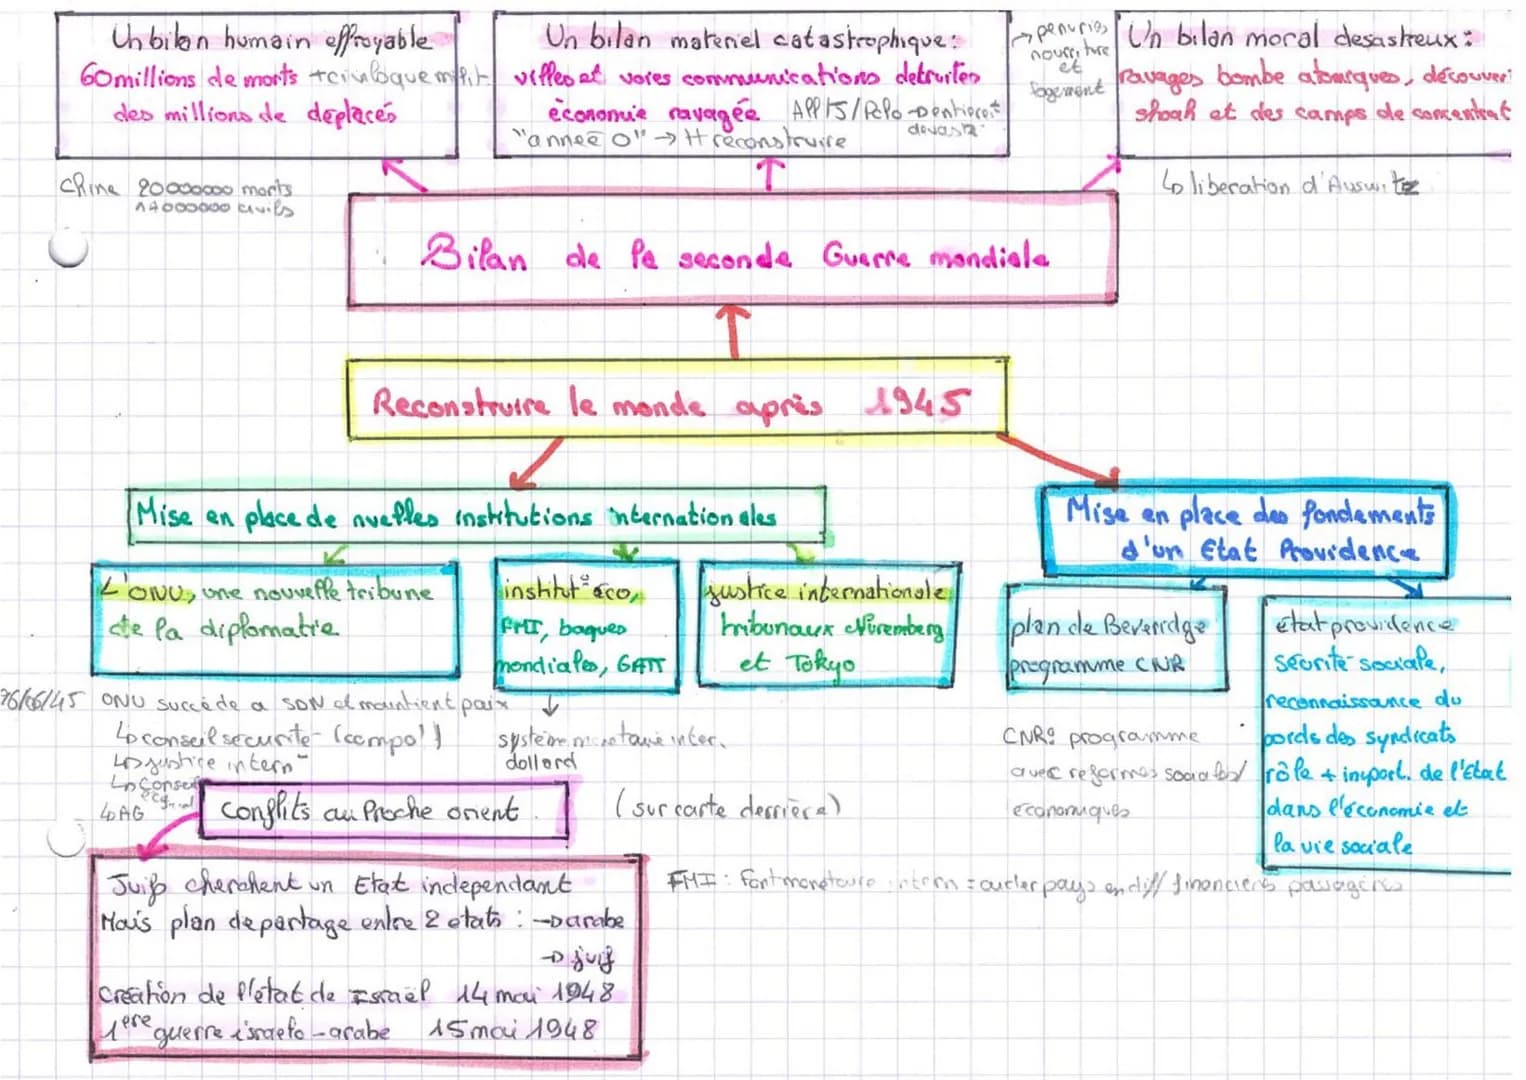 Un bilan humain effroyable
60 millions de morts + civil que milit
des millions de déplacés
Un bilan materiel catastrophique:
villes et voies communications detruites
économie ravagée
"année 0" → H reconstruire
→ penuries
nourriture
et
logement
Un bilan moral desastreux:
ravages bombe atomiques, découver
shoah et des camps de concentrat
Chine 20000000 morts
civils
↳ liberation d'Auswitz
Bilan de la seconde Guerre mondiale
Reconstruire le monde après 1945
Mise en place de nvelles institutions internationales
Mise en place des fondements
d'un Etat Providence
L'ONU, une nouvelle tribune
de la diplomatie
institut° éco,
FMI, baques
mondiales, GATT
justice internationale
tribunaux Nuremberg
et Tokyo
plan de Beveridge
programme CNR
état providence
sécurité sociale,
reconnaissance du
poids des syndicats
rôle + import. de l'Etat
dans l'économie et
la vie sociale
26/06/45 ONU succède a SDN et maintient paix
↳ conseil sécurité (compo!)
↳ justice intern
↳ Conseil
↳ AG
↓
système monetaire inter.
dollard
CNR: programme
avec reformes sociales/
économiques
Conflits au Proche orient
(sur carte derrière)
Juifs cherchent un Etat independant
Mais plan de partage entre 2 etats : → arabe
→ juif
Création de l'état de Israël 14 mai 1948
1ère guerre israelo-arabe 15 mai 1948
FMI : Font monetaire intern = aider pays en diff financiers passagères